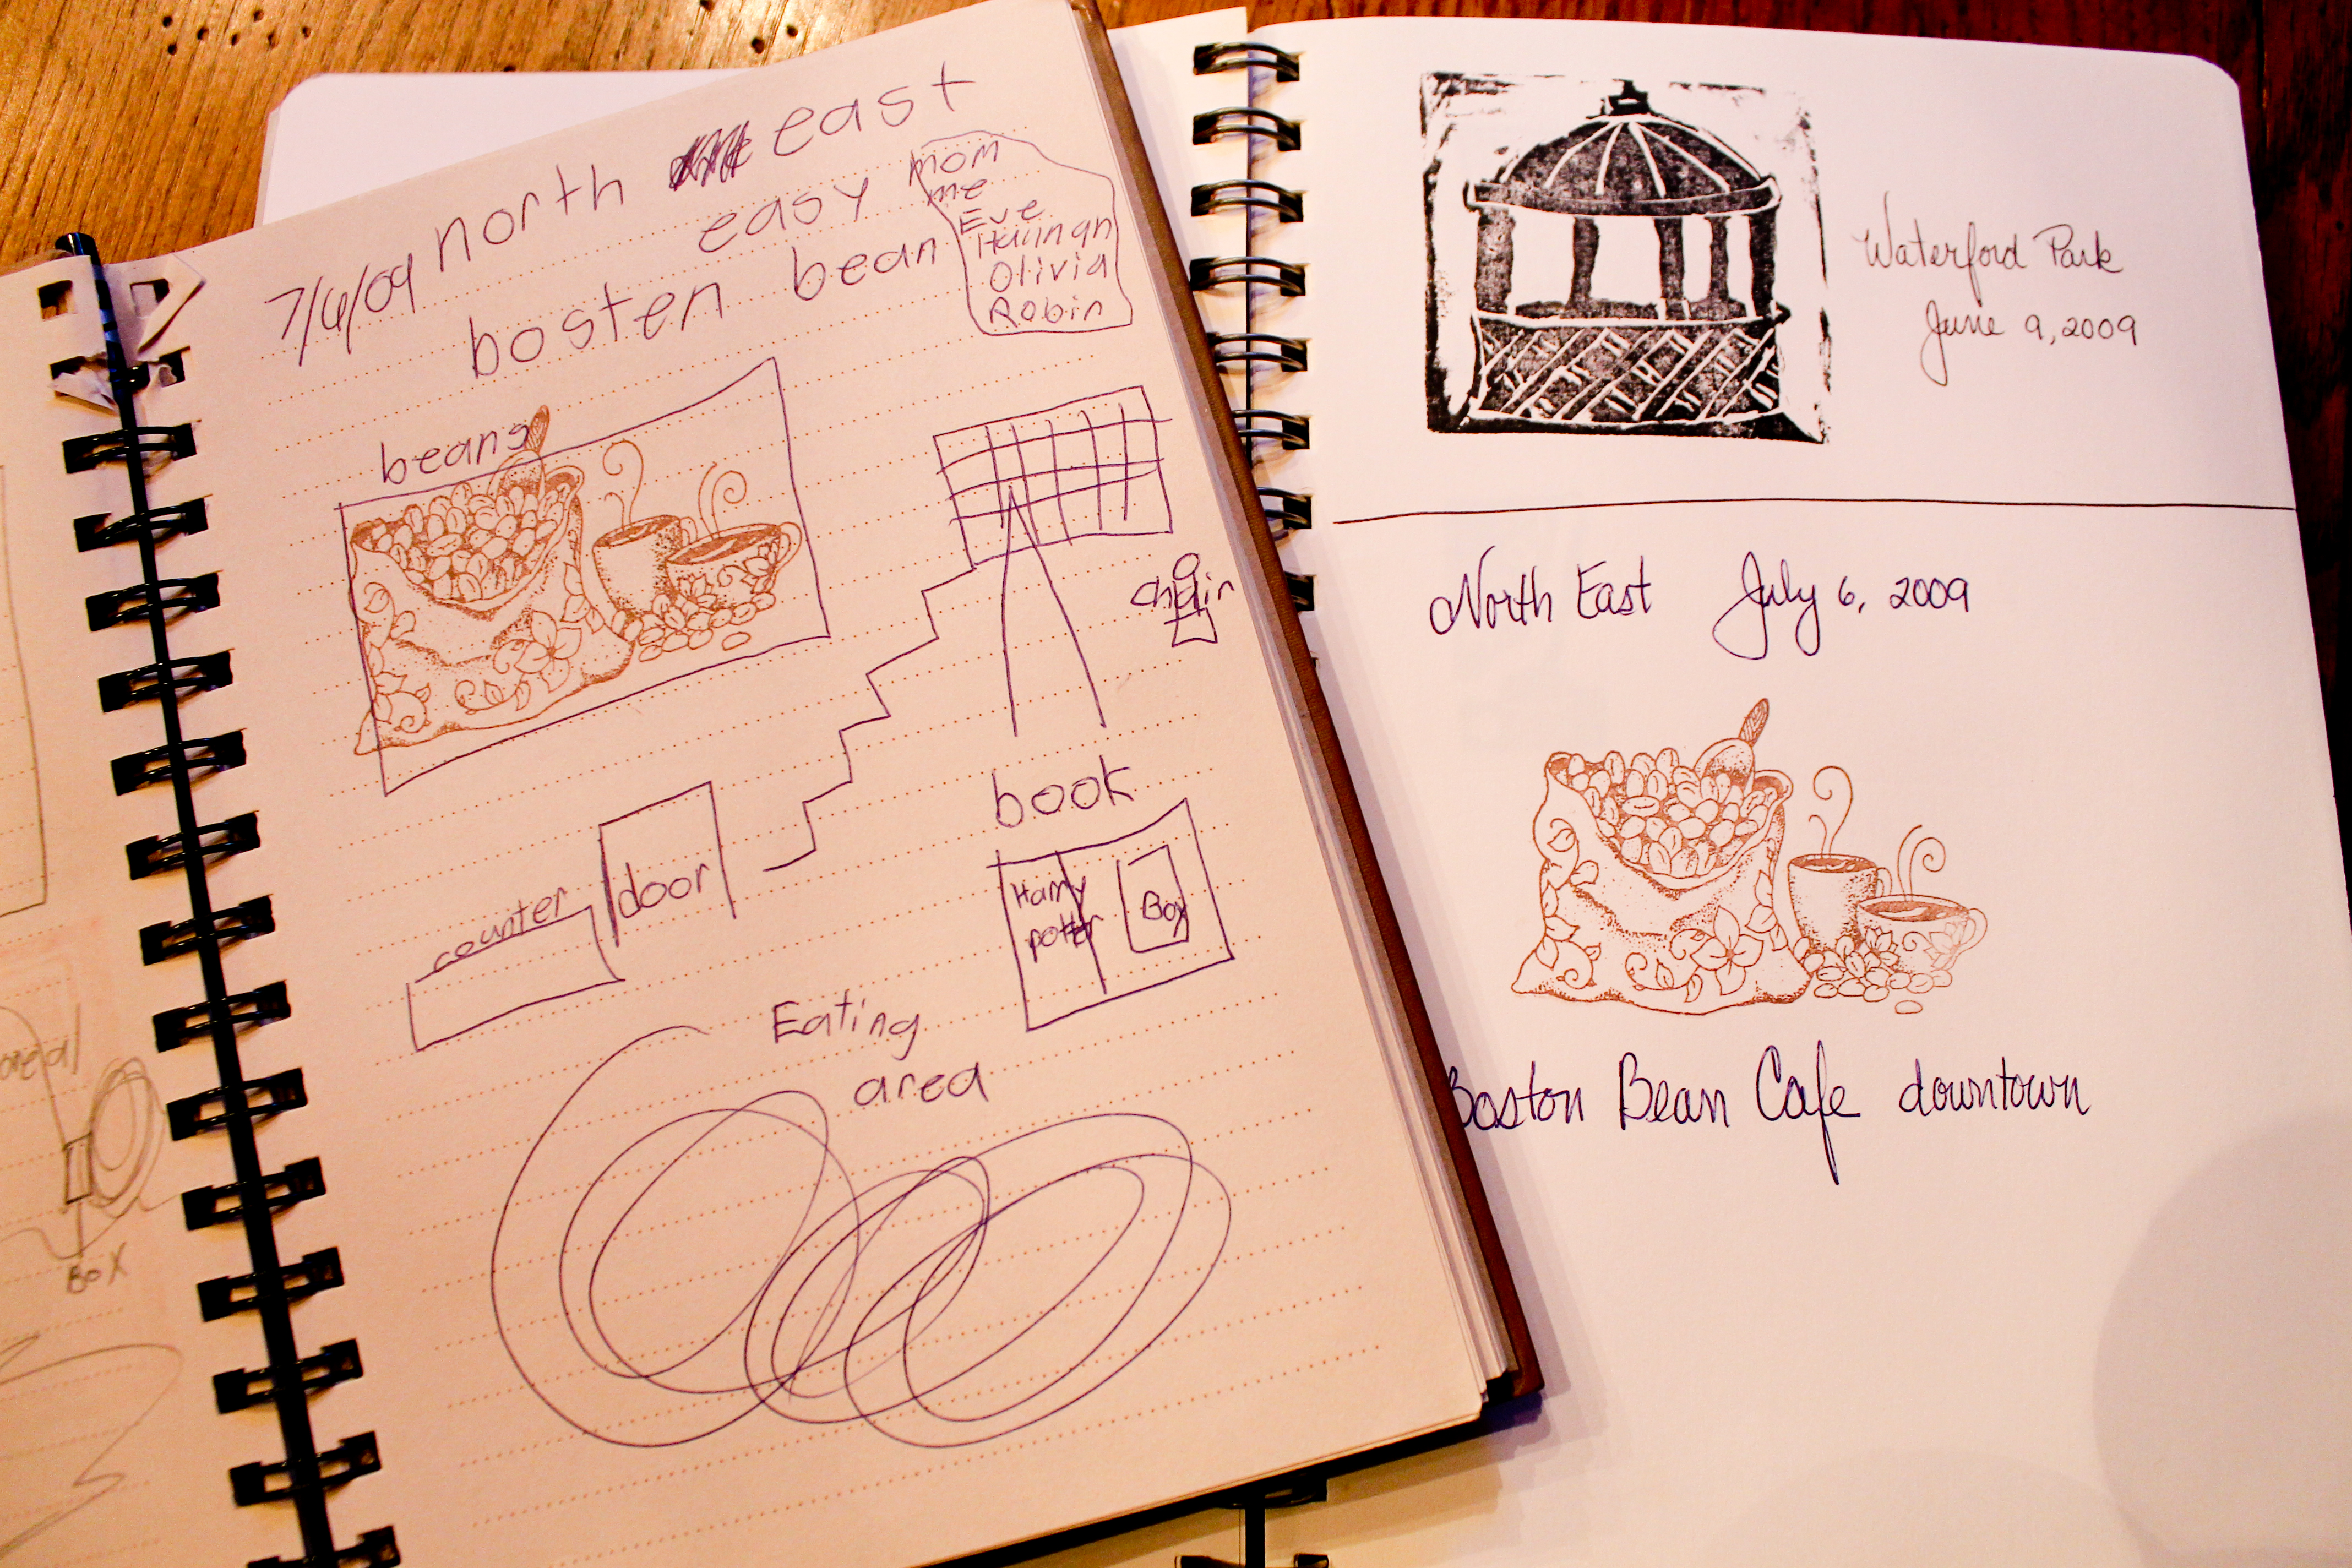 7/6/09 north east
easy
bosten bean
mom
me
Eve
Hannah
Olivia
Robin
beans
chair
book
Harry
potter
Box
door
counter
Eating
area
Box
Waterford Park
June 9, 2009
North East July 6, 2009
Boston Bean Cafe downtown